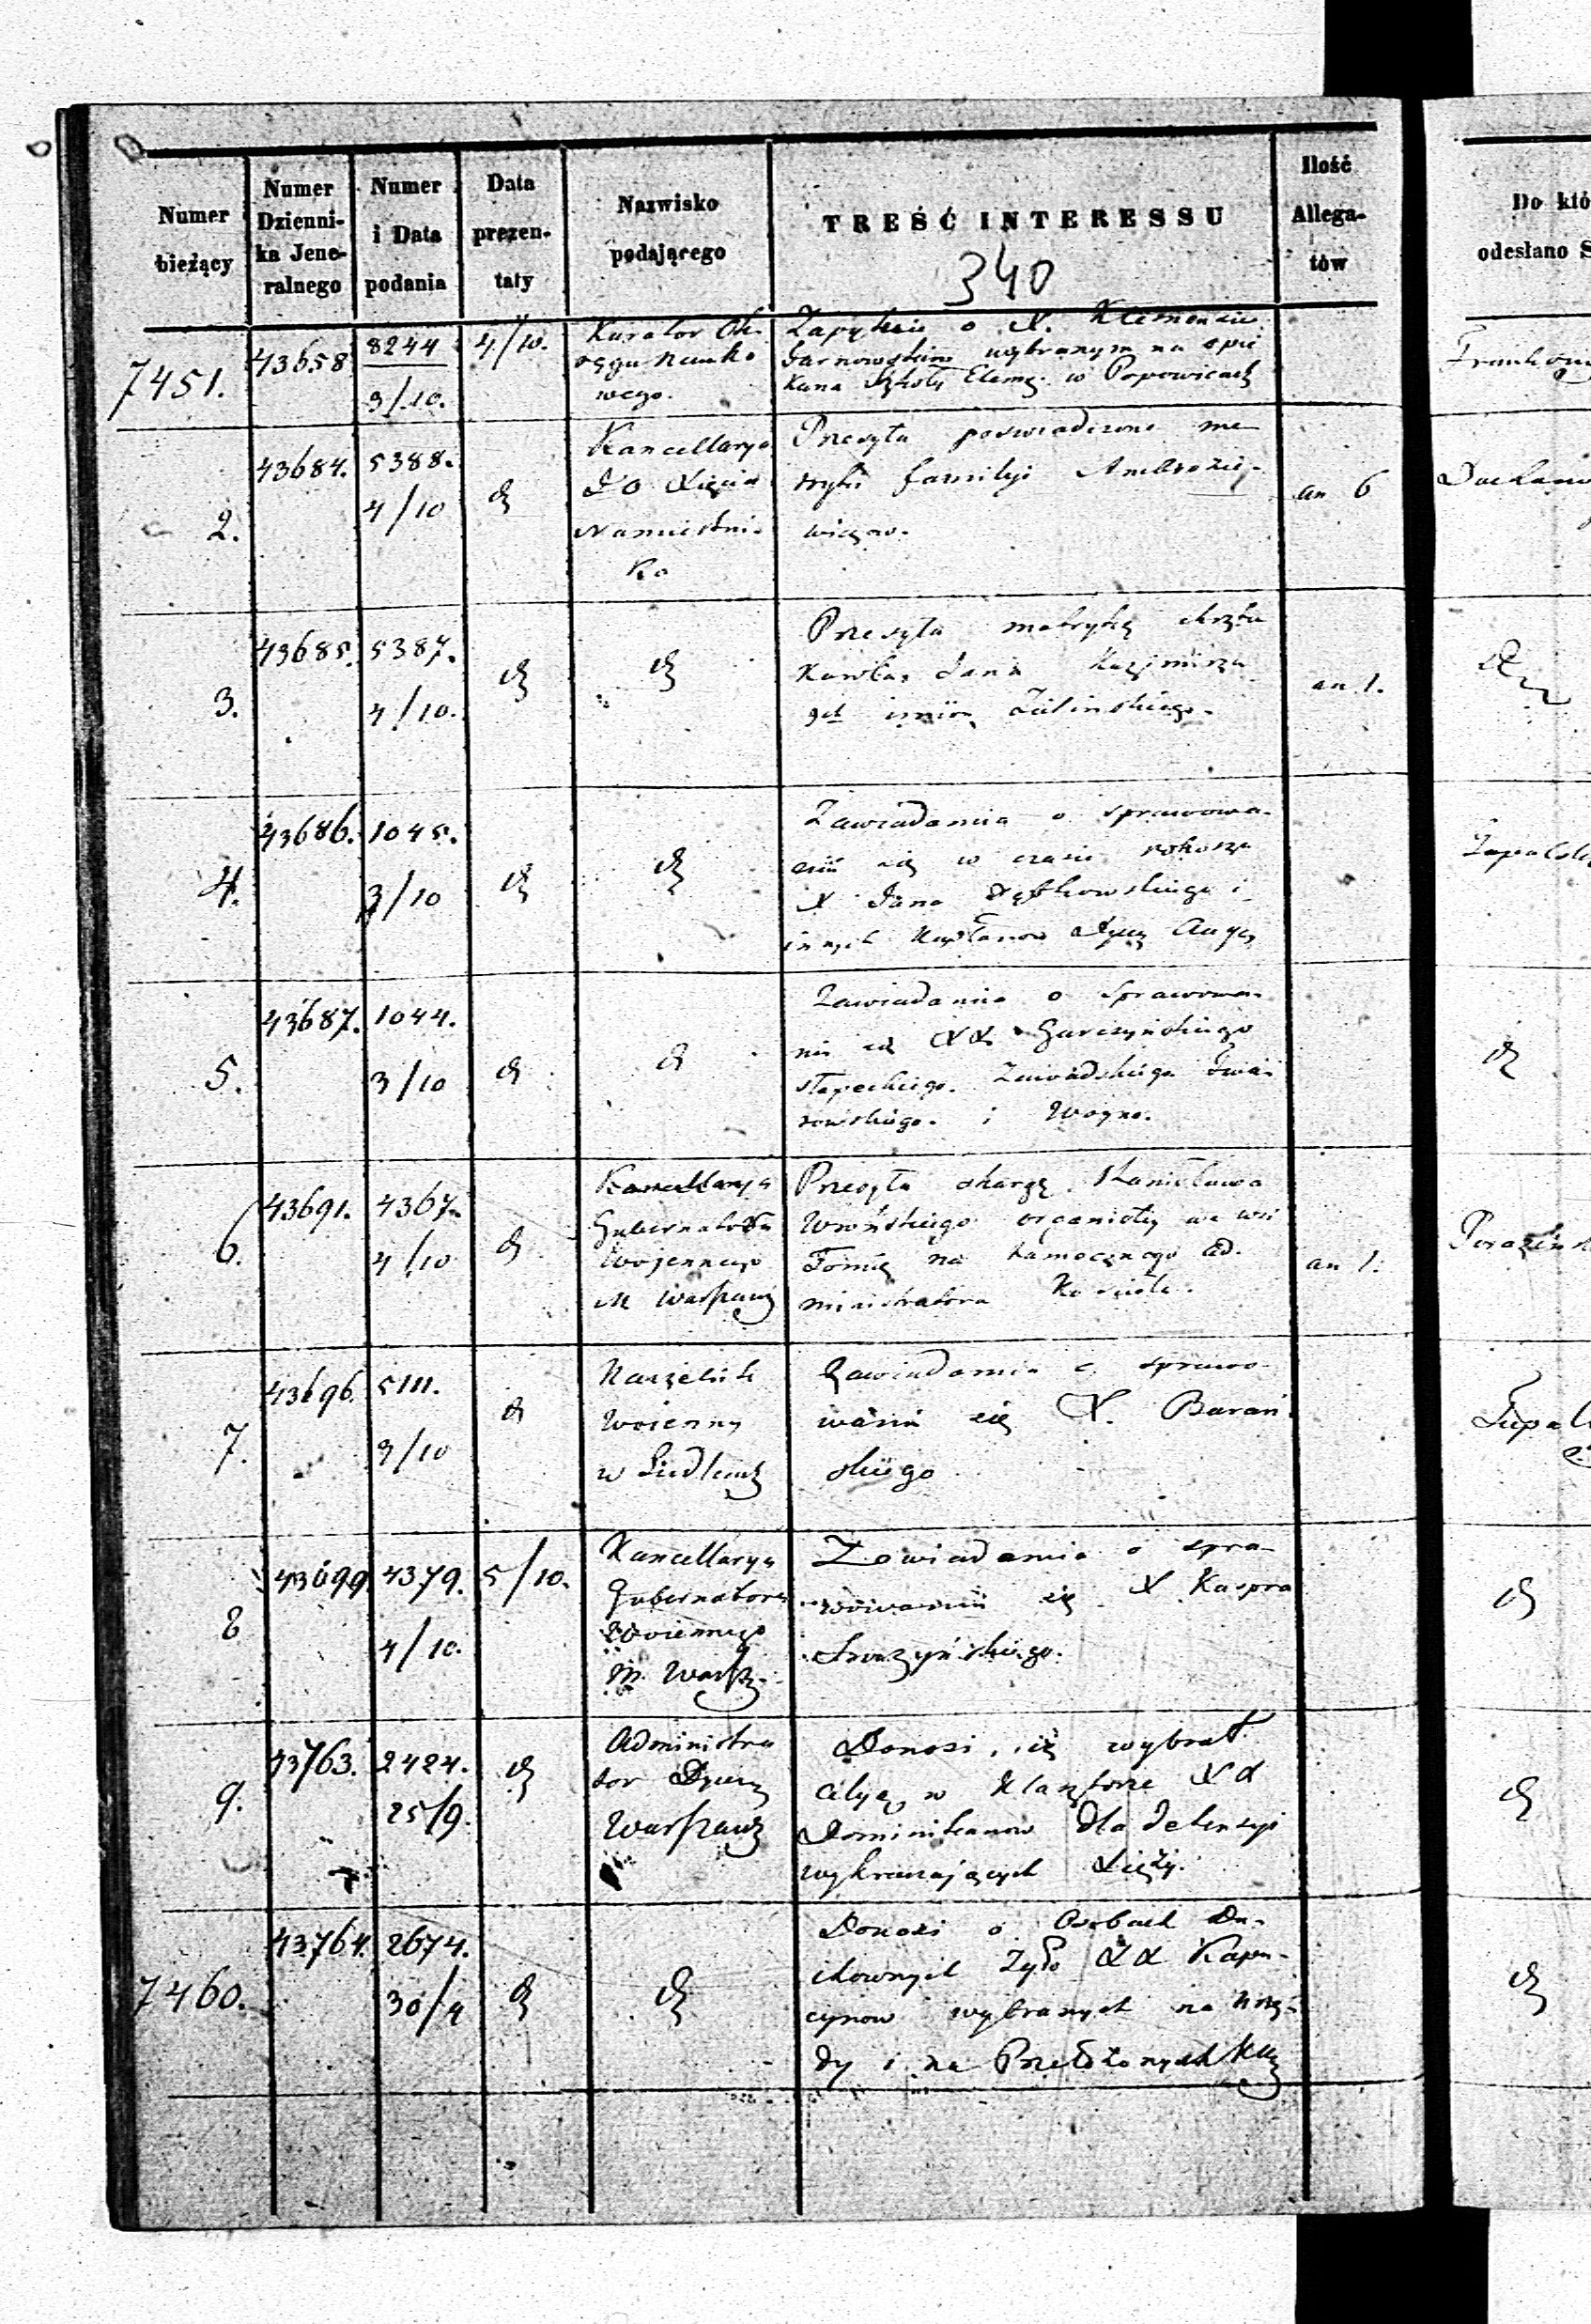 Numer bieżący
Numer Dzienni- ka Jene- ralnego
Numer i Data podania
Data prezen- taty
Nazwisko podającego
TREŚĆ INTERESSU
340
Ilość Allega- tów
Do któ
odesłano S
7451.
43658
8244
3/10.
4/10.
Kurator Ok-
ręgu Nauko
wego.
Zapytuje o X.
wybranym na opie
kuna Szkoły Elemę. w Popowicach
2.
43684.
5388.
4/10
Kancellarya
JO Xięcia
Namiestni-
ka
Przesyła poswiadczone me
tryki familyi Ambrozie-
wiczow.
an 6
3.
43685.
5387.
4/10.
Przesyła metrykę chrztu
Karola, Jana Kazimirza
3ch imion Zielinskiego.
an 1.
4.
43686.
1045.
3/10
Zawiadamia o sprawowa-
niu się w czasie rokoszu
X Jana i
innych Kapłanow Dyec Aug
5.
43687.
1044.
3/10
Zawiadamia o sprawowa-
niu się XX. Garczyńskiego
Zawadskiego
i Woyno.
6.
43691.
4367.
4/10
Kancellarya
Gubernatora
Wojennego
M Warszawy
Przesyła skargę Stanisława
Wrońskiego organisty we wsi
na tamecznego Ad-
ministratora Kościoła.
an 1.
7.
43696.
5111.
3/10
Naczelnik
Woienny
w Siedlcach
Zawiadamia o sprawo-
waniu się X. Barań
skiego
8
43699.
4379.
4/10.
5/10.
Kancellarya
Gubernatora
Woiennego
M. Warsz.
Zawiadamia o spra-
wowaniu się X Kaspra
9.
43763.
2424.
25/9.
Administra
tor Dyecy
Warszaws
Donosi, iż wybrał
celye w Klasztorze XX
Dominikanow dla detencyi
wykraczających Xięży.
7460.
43764.
2674.
30/9
Donosi o Osobach Du-
chownych Zgro XX Kapu-
cynow wybranych na urzę-
dy i na Przełożonych